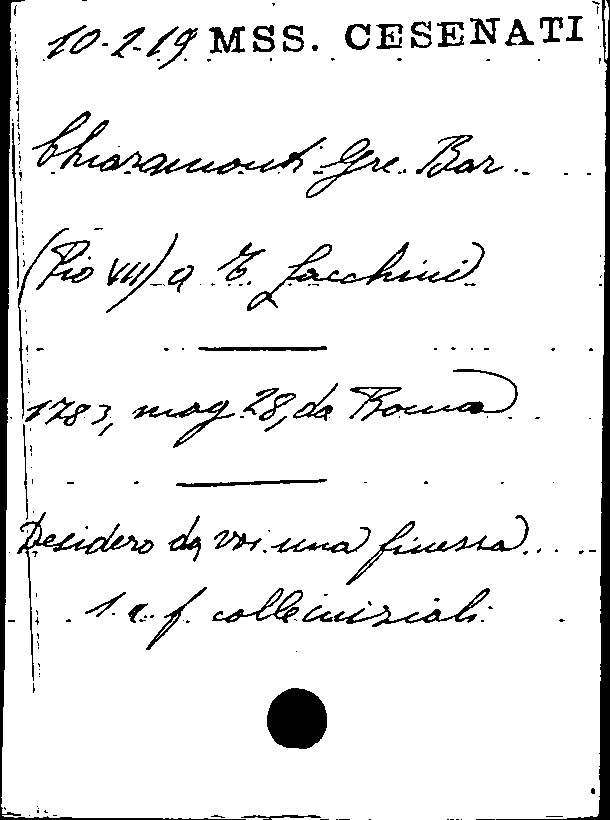 10-2-19 MSS. CESENATI
Chiaramonti Gre. Bar
(Pio VII) a T. Zacchini
1783, mag 28, da Roma
Desidero da voi una finezza
l. a. f. colle iniziali